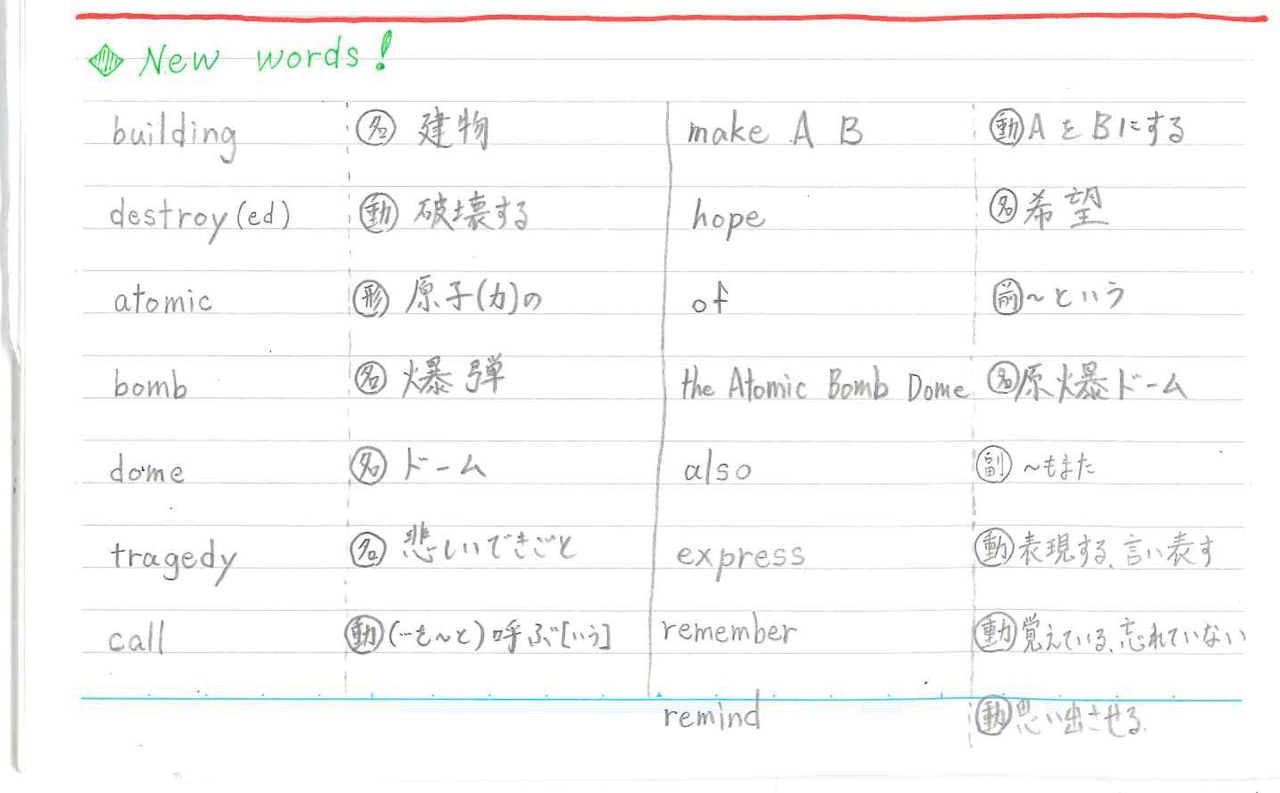 New words!
building 名 建物 make A B 動 AをBにする
destroy(ed) 動 破壊する hope 名 希望
atomic 形 原子(力)の of 前 〜という
bomb 名 爆弾 the Atomic Bomb Dome 名 原爆ドーム
dome 名 ドーム also 副 〜もまた
tragedy 名 悲しいできごと express 動 表現する、言い表す
call 動 (…を〜と)呼ぶ[いう] remember 動 覚えている、忘れていない
remind 動 思い出させる